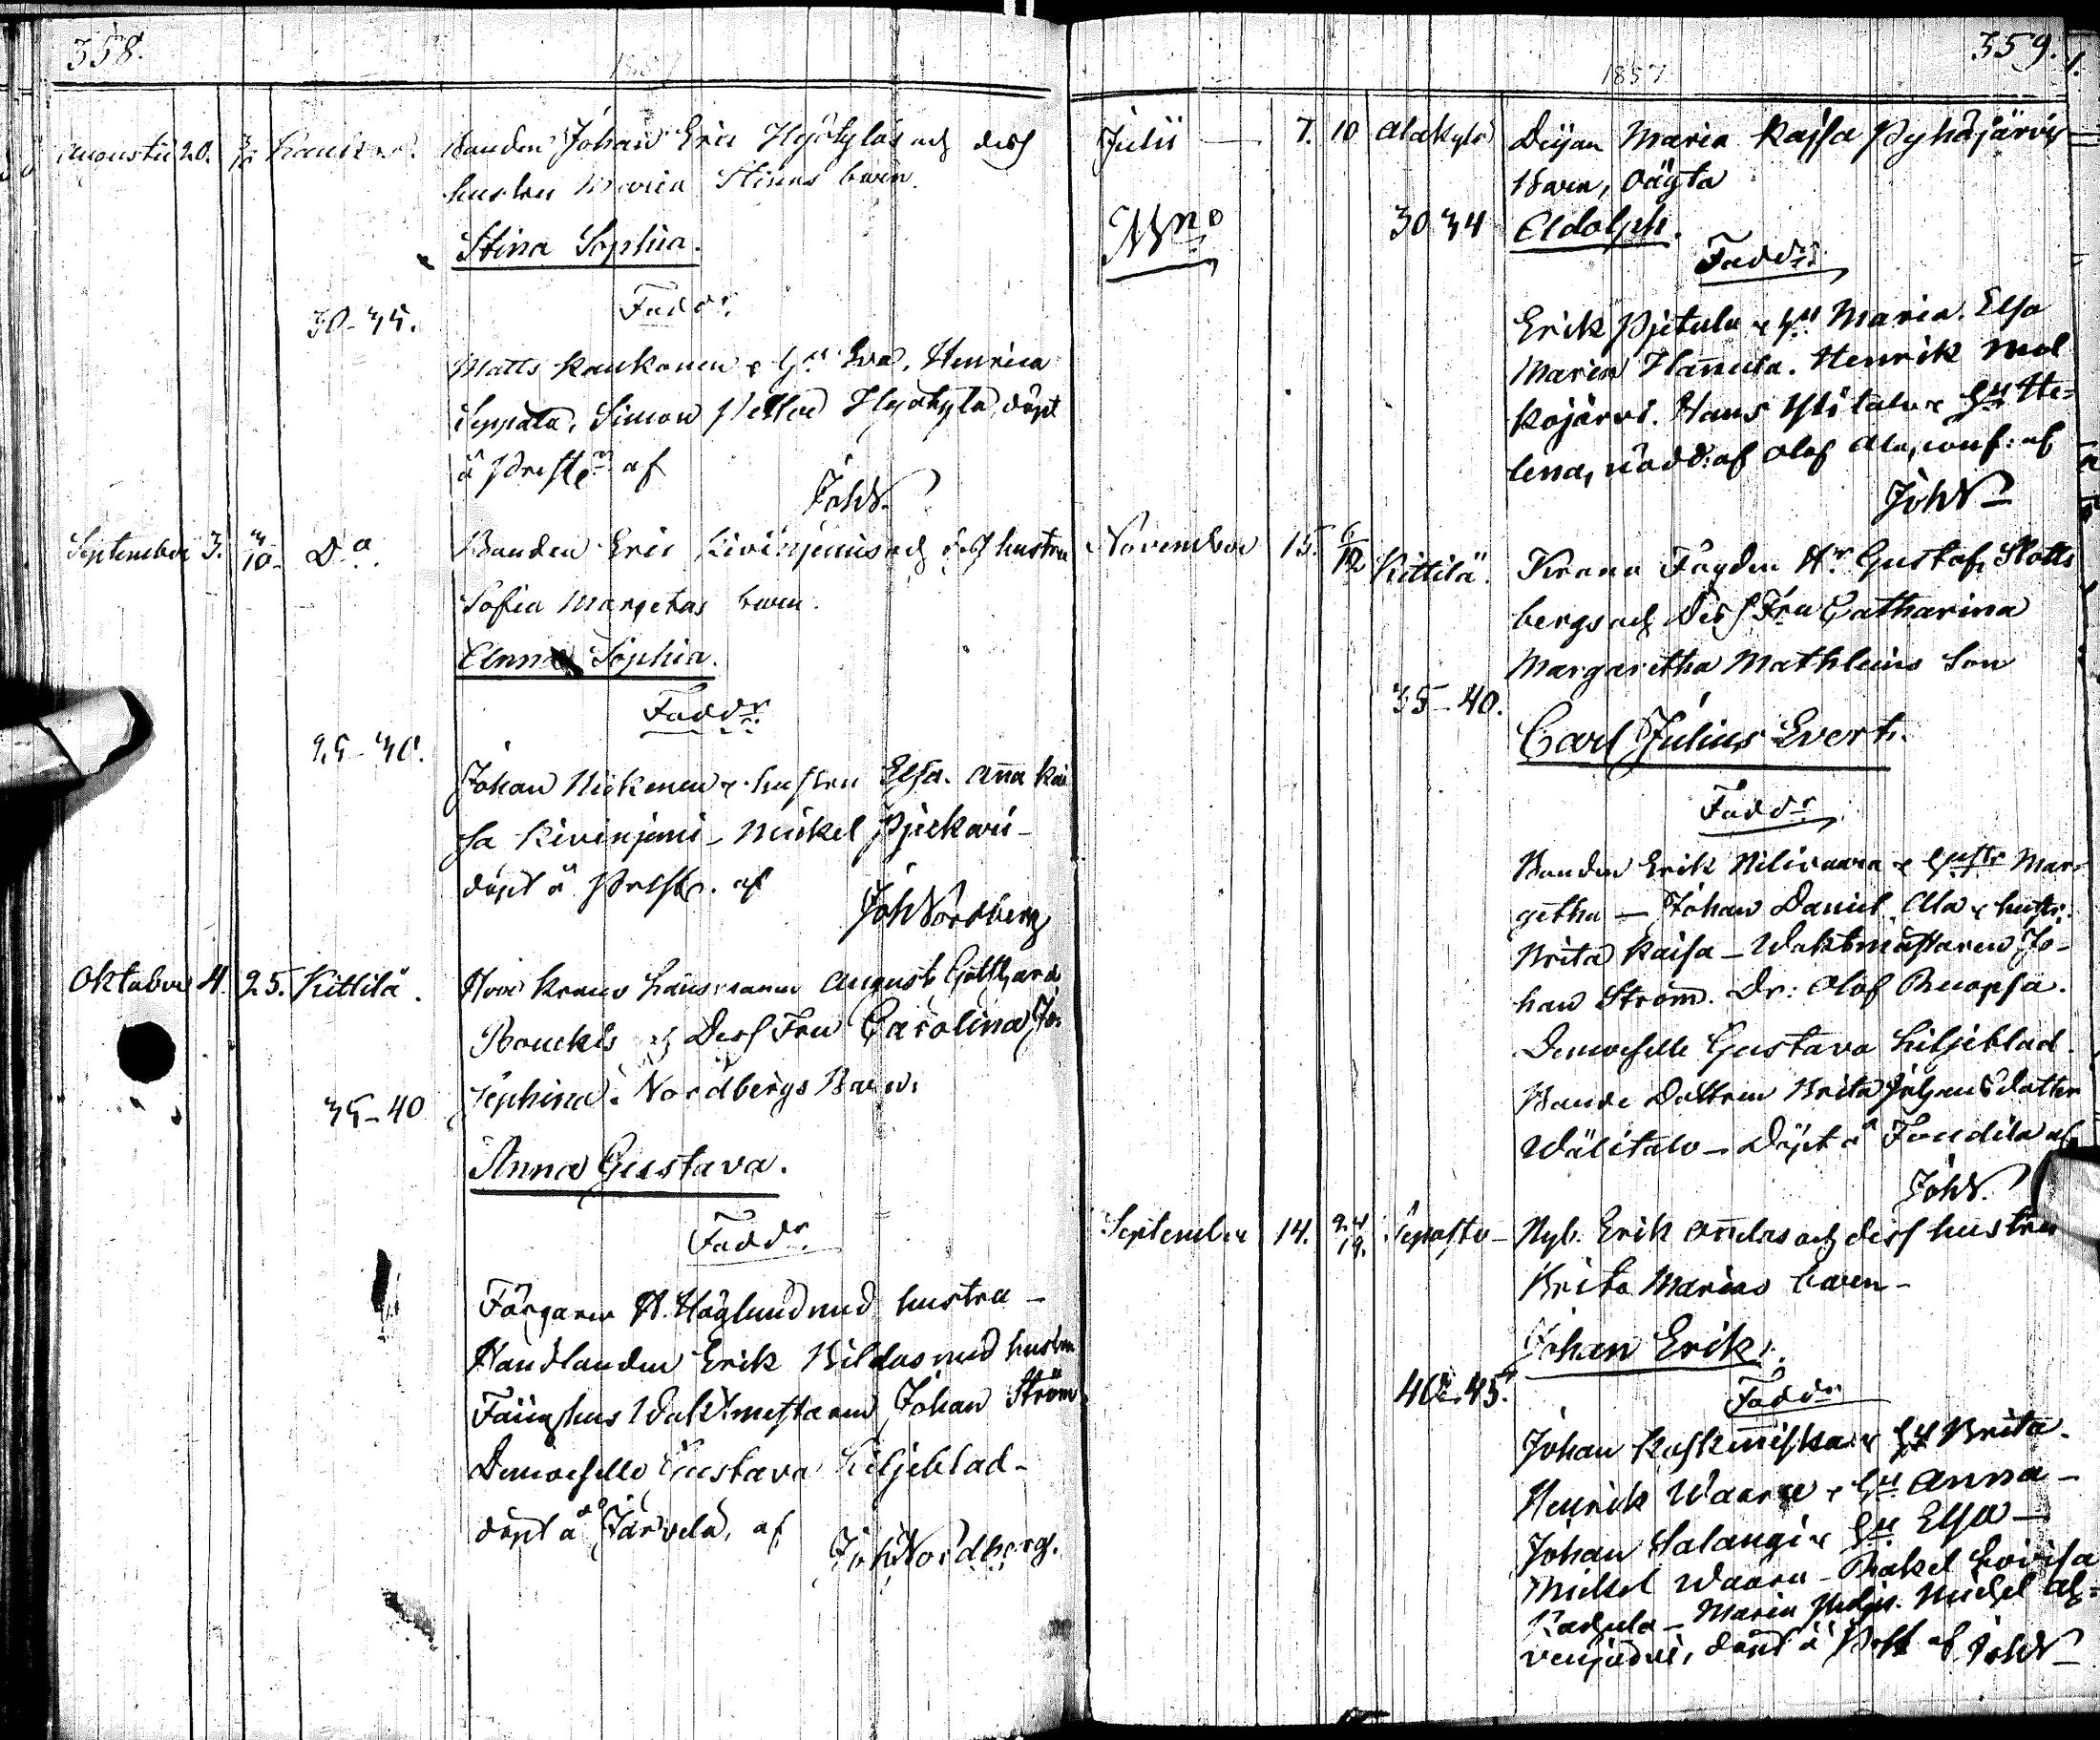 358.
Augusti 20.
Bonden Johan Eric Hyötyläs och dess
hustru Maria Stinas barn.
Stina Sophia.
30-35.
Faddr.
Matts Kaukonen & Hu Eva. Henrica
Seppälä, Simon Petter Hyötylä, döpt
å Prestg. af
JohN.
September 3. 4/10. Do.
Bonden Eric Kivinjemis och dess hustru
Sofia Margetas barn.
Anna Sophia.
Faddr.
25-30.
Johan Nickunen & hustru Elsa. Anna Kai
sa Kivinjemi - Mickel
döpt å Prestg. af
JohNordberg
Oktober 4. 25. Kittilä.
Herr Krono Länsmannen August Gotthard
och Dess Fru Carolina Jo-
sephina Nordbergs Barn.
35-40
Anna Gustava.
Faddr.
Färgaren H. Höglund med hustru -
Handlanden Erik med hustru
Fånghus Waktmestaren Johan Ström
Demoiselle Gustava Liljeblad -
döpt å Järvelä, af
JohNordberg.
359.
1857
Julii - 7. 10 Alakylä
Pigan Maria Kajsa Pyhäjärvis
Barn, oägta
30 34
Adolph.
Faddr.
Erik Pietula & Hu Maria. Elsa
Maria Hannula. Henrik Mol
kojärvi. Hans Ylitalo & Hu He-
lena, nöddöpt af Olof Ala, conf: af
JohN
November 15. 6/12 Kittilä.
Krono Fogden Hr Gustaf Slotts
bergs och Dess Fru Catharina
Margaretha Mathleins Son
35-40.
Carl Julius Evert.
Faddr.
Bonden Erik Nilivaara & hustr Mar-
getha - Johan Daniel Ala & hustr.
Brita Kaisa - Waktmästaren Jo-
han Ström. Dr: Olof Ruopsa.
Demoiselle Gustava Liljeblad.
Bonde Dottren Brita Johansdotter
Wälitalo - Döpt å af
JohN.
September 14.
Nyb. Erik Annelas och dess hustru
Brita Marias barn -
Johan Erik.
40-45.
Faddr
Johan & Hu Brita.
Henrik Waara & Hu Anna -
Johan Salangi & Hu Elsa -
Mickel Waara - Rakel Lovisa
Maria Michel
döpt å Prstg af JohN